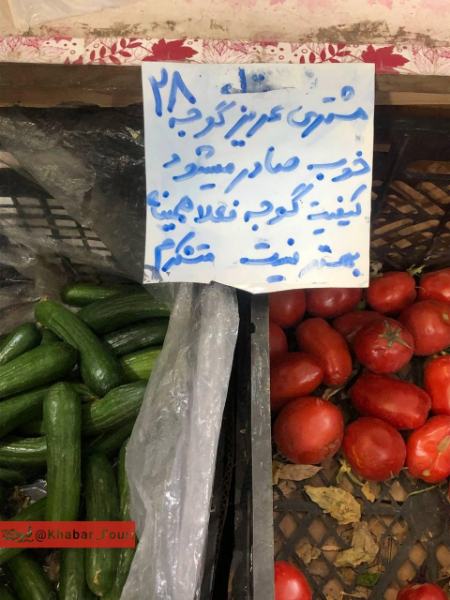 ۲۸
مشتری عزیز گوجه
خوب صادر میشود
کیفیت گوجه فعلا همینا
بهتر نیست متشکرم
@Khabar_Four